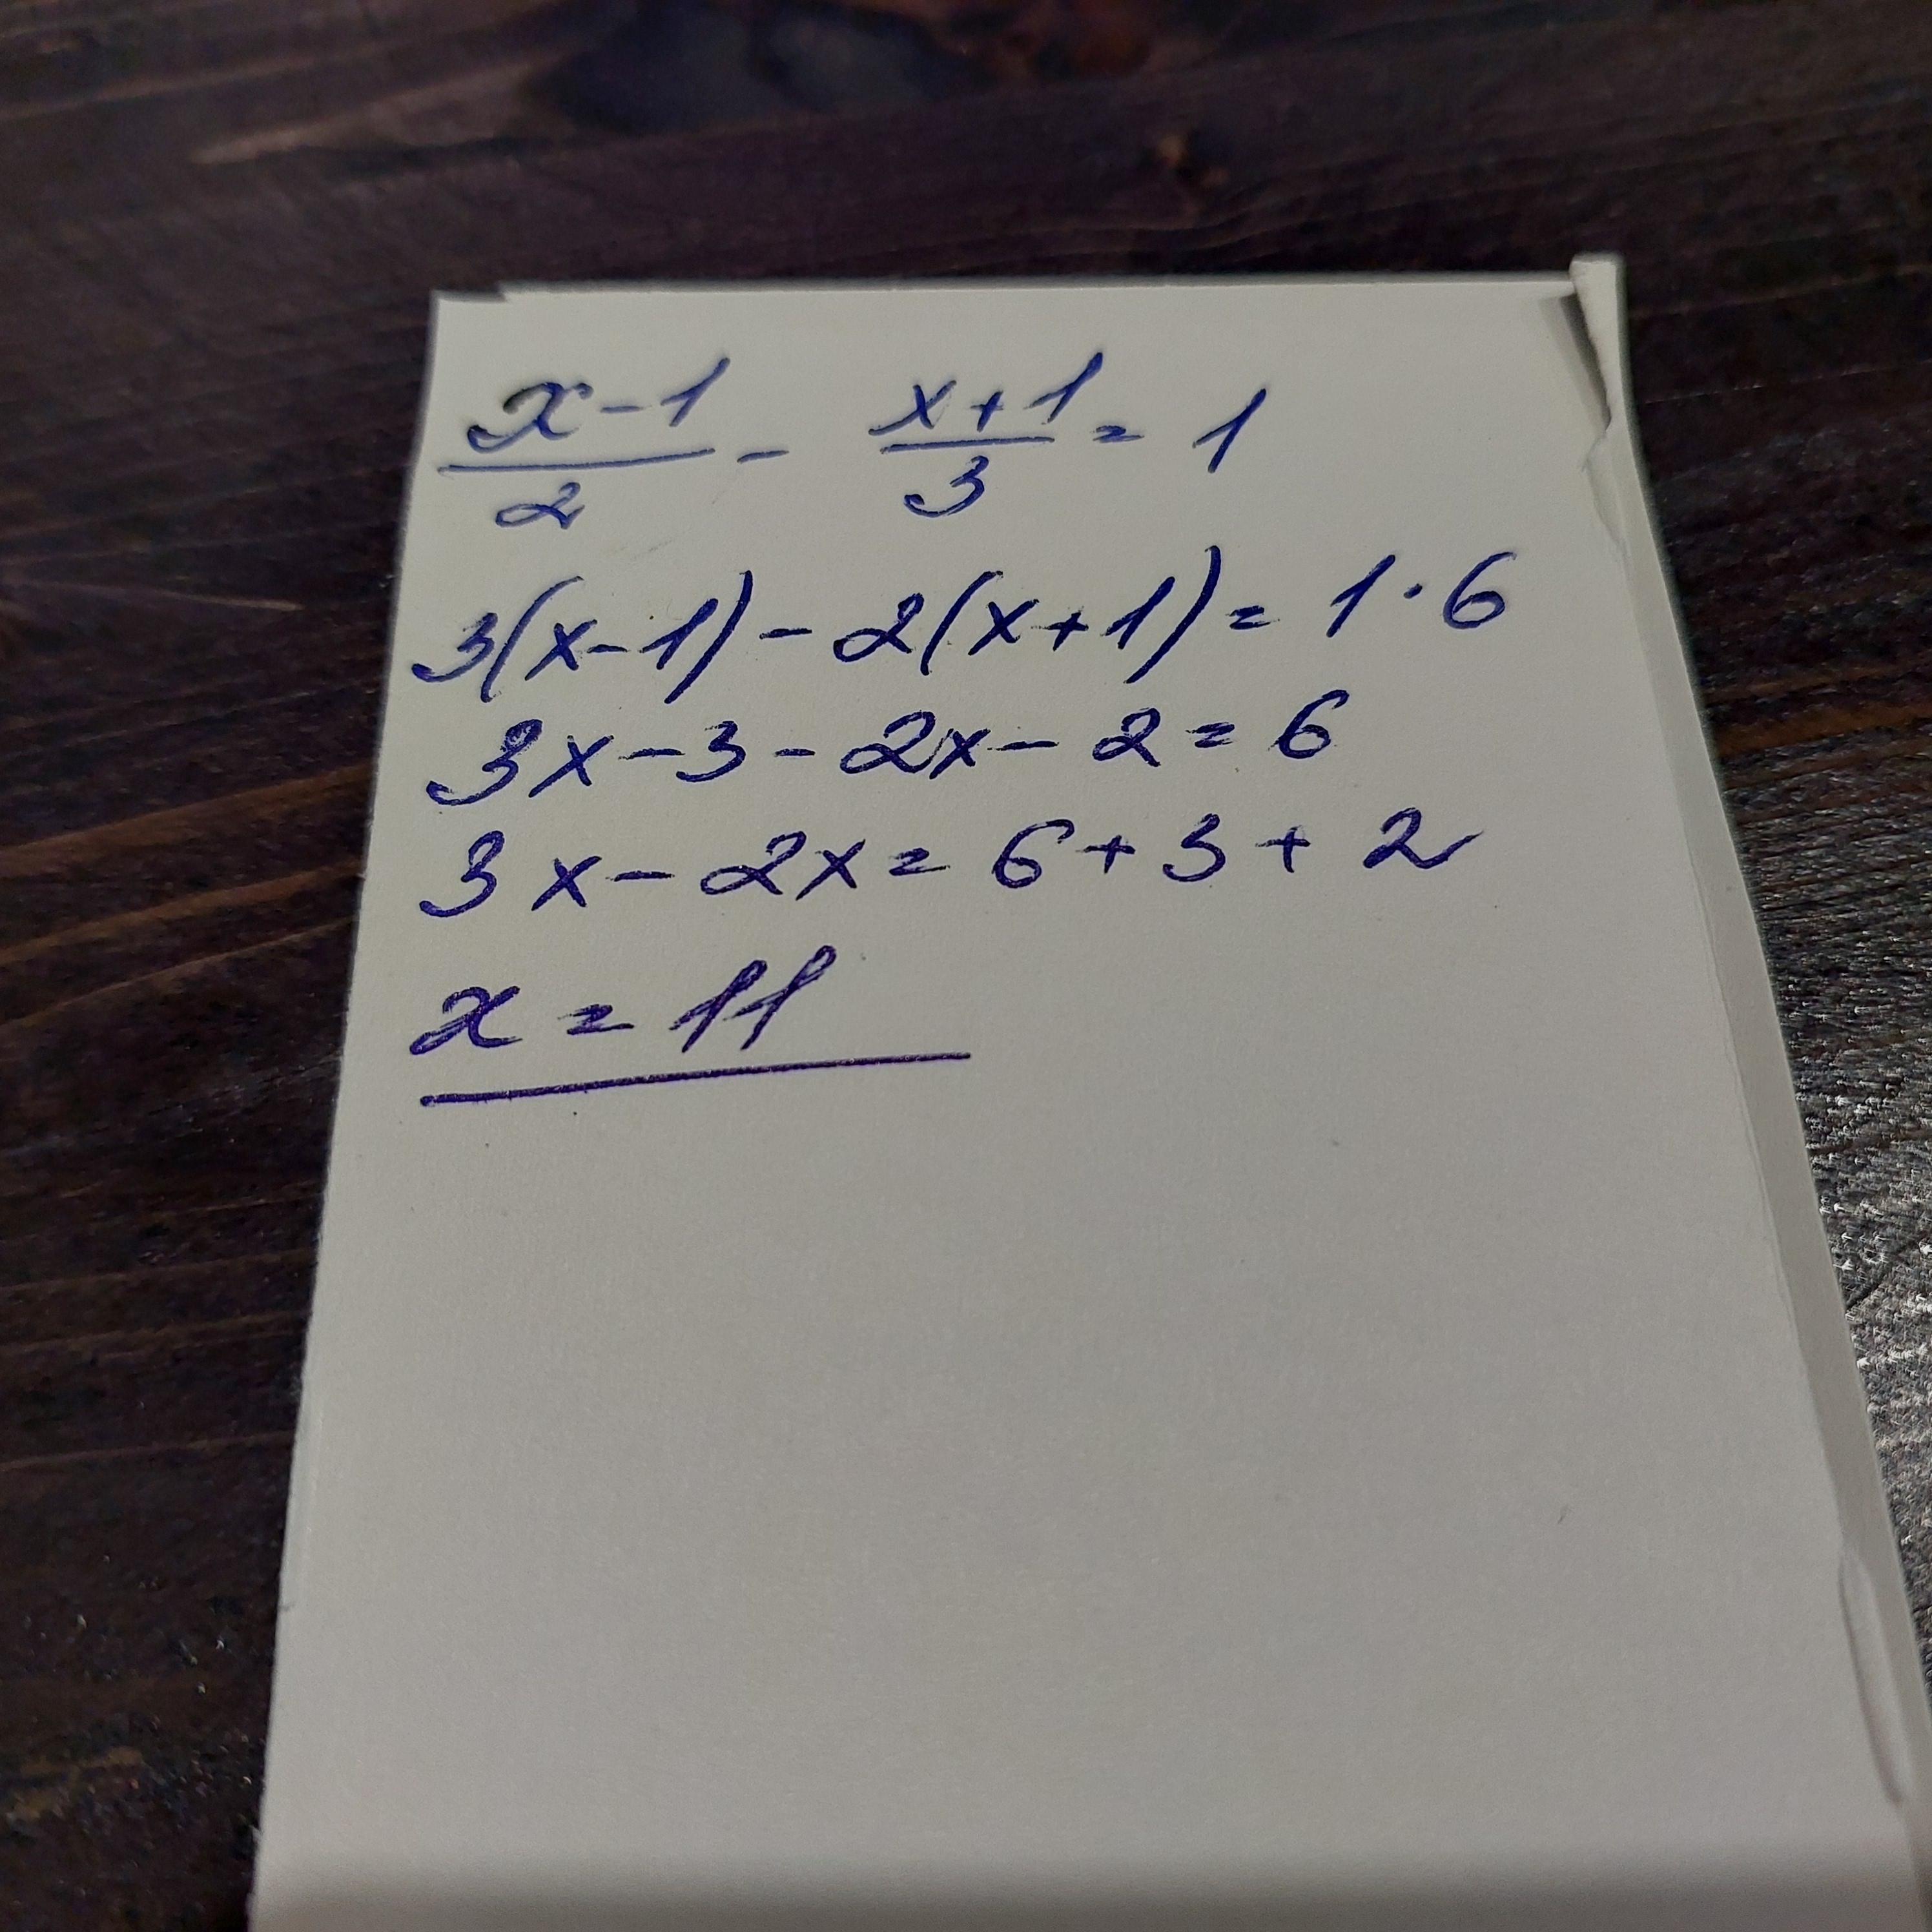 x-1/2 - x+1/3 = 1
3(x-1) - 2(x+1) = 1·6
3x-3-2x-2=6
3x-2x=6+3+2
x=11